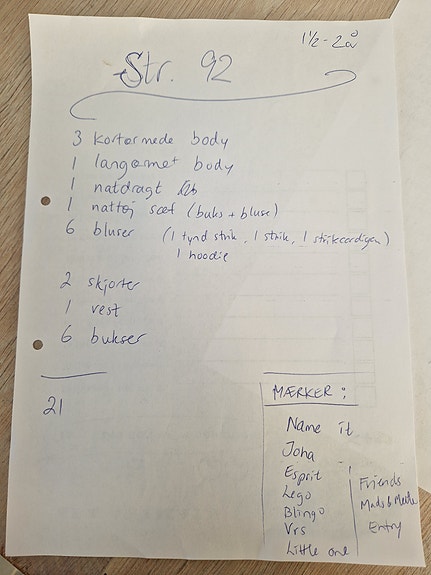 1½ - 2 å
Str. 92
3 kortærmede body
1 langærmet body
1 natdragt
1 nattøj sæt (buks + bluse)
6 bluser (1 tynd strik, 1 strik, 1 strikcardigan)
1 hoodie
2 skjorter
1 vest
6 bukser
21
MÆRKER:
Name it
Joha
Esprit
Lego
Blingo
Vrs
Little one
Friends
Mads & Mette
Entry